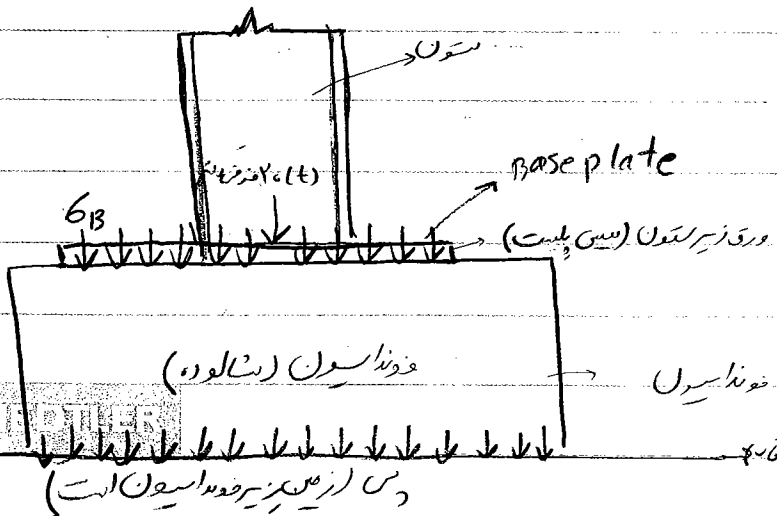 ستون
۲۰(t)
Base plate
σB
ورق زیر ستون (بیس پلیت)
فونداسیون (شالوده)
فونداسیون
پی (زمین زیر فونداسیون است)